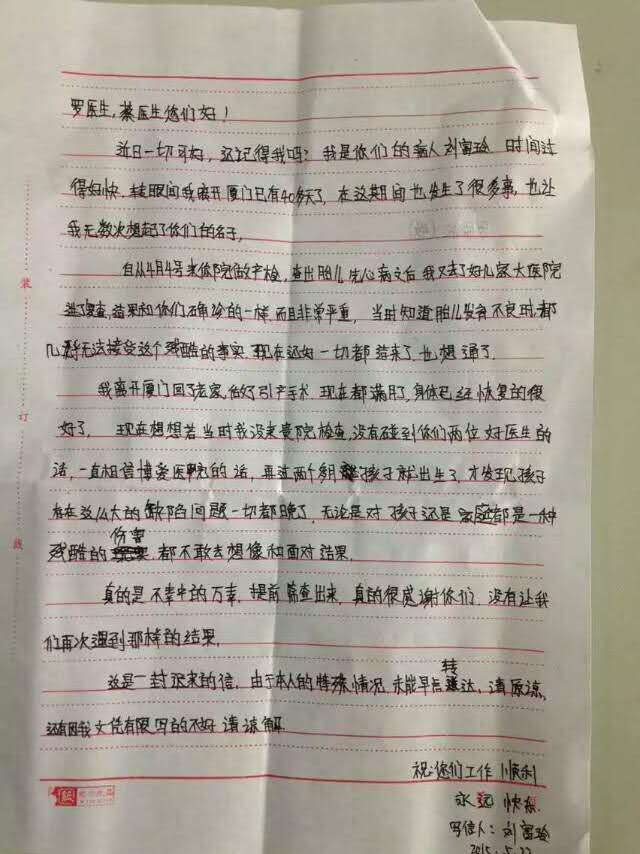 罗医生,蔡医生您们好!
近日一切可好,还记得我吗?我是你们的病人刘富玲 时间过
得好快.转眼间我离开厦门已有40多天了,在这期间也发生了很多事,也让
我无数次想起了你们的名字,
自从4月4号来你院做产检,查出胎儿先心病之后 我又去了好几家大医院
进行复查,结果和你们确诊的一样 而且非常严重, 当时知道胎儿发育不良时,都
无法接受这个残酷的事实 现在还好一切都结束了,也想通了.
我离开厦门回了老家,做了引产手术 现在都满月了,身体已经恢复的很
好了, 现在想想若当时我没来贵院检查,没有碰到你们两位好医生的
话,一直相信博爱医院的话,再过两个多月 孩子就出生了,才发现孩子
存在这么大的缺陷问题一切都晚了,无论是对孩子还是家庭都是一种
残酷的伤害,都不敢去想像和面对结果.
真的是不幸中的万幸,提前筛查出来,真的很感谢你们,没有让我
们再次遇到那样的结果,
这是一封迟来的信,由于本人的特殊情况 未能早点转达,请原谅,
还有因我文凭有限写的不好 请谅解.
祝:您们工作顺利
永远快乐.
写信人:刘富玲
2015.5.22
装
订
线